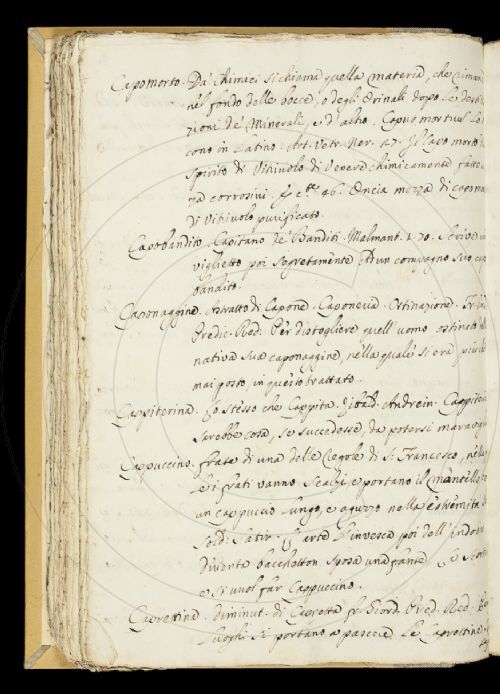 Capomorto. Da' Chimaci si chiama quella materia, che riman
nel fondo delle bocce, o degli Orinali dopo le Disti
zioni de' Minerali, e d' altro. Caput mortuum lo
cono in Latino. Art. Vetr. Ner. 47. Il Capo morto
Spirito di Vitriuolo di Venere chimicamente fatto
za corrosivi. 46. Oncia mezza di Capomo
di Vitriuolo purificato.
Capobandito. Capitano de' Banditi. Malmant. 1. 70. Scrive un
viglietto poi segretamente Ad un compagno suo capo
bandito.
Caponaggine. Astratto di Capone. Caponeria. Ostinazione.
Predic. Red. Per distogliere quell' uomo ostinato
nativa sua caponaggine, nella quale si era più che
mai posto, in questo trattato.
Cappiterina. Lo stesso che Cappita. Andrein.
sarebbe cosa, se succedesse, da potersi maravigl
Cappuccino. frate di una delle Regole di S. Francesco, nella
le i frati vanno Scalzi, e portano il mantello, e
un cappuccio lungo, e aguzzo nella estremità
Sold. Satir. arte l'invesca poi dell'
diventa bacchetton. Sposa una fante
e si vuol far Cappuccino.
Caprettina. diminut. di Capretta. Red.
luoghi si portano a pascere le Caprettine